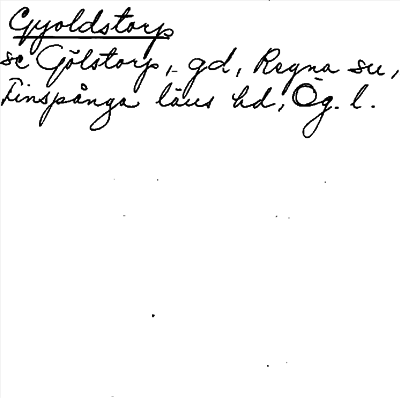 Gyoldstorp
se Gölstorp, gd, Regna sn,
Finspånga läns hd, Ög. l.